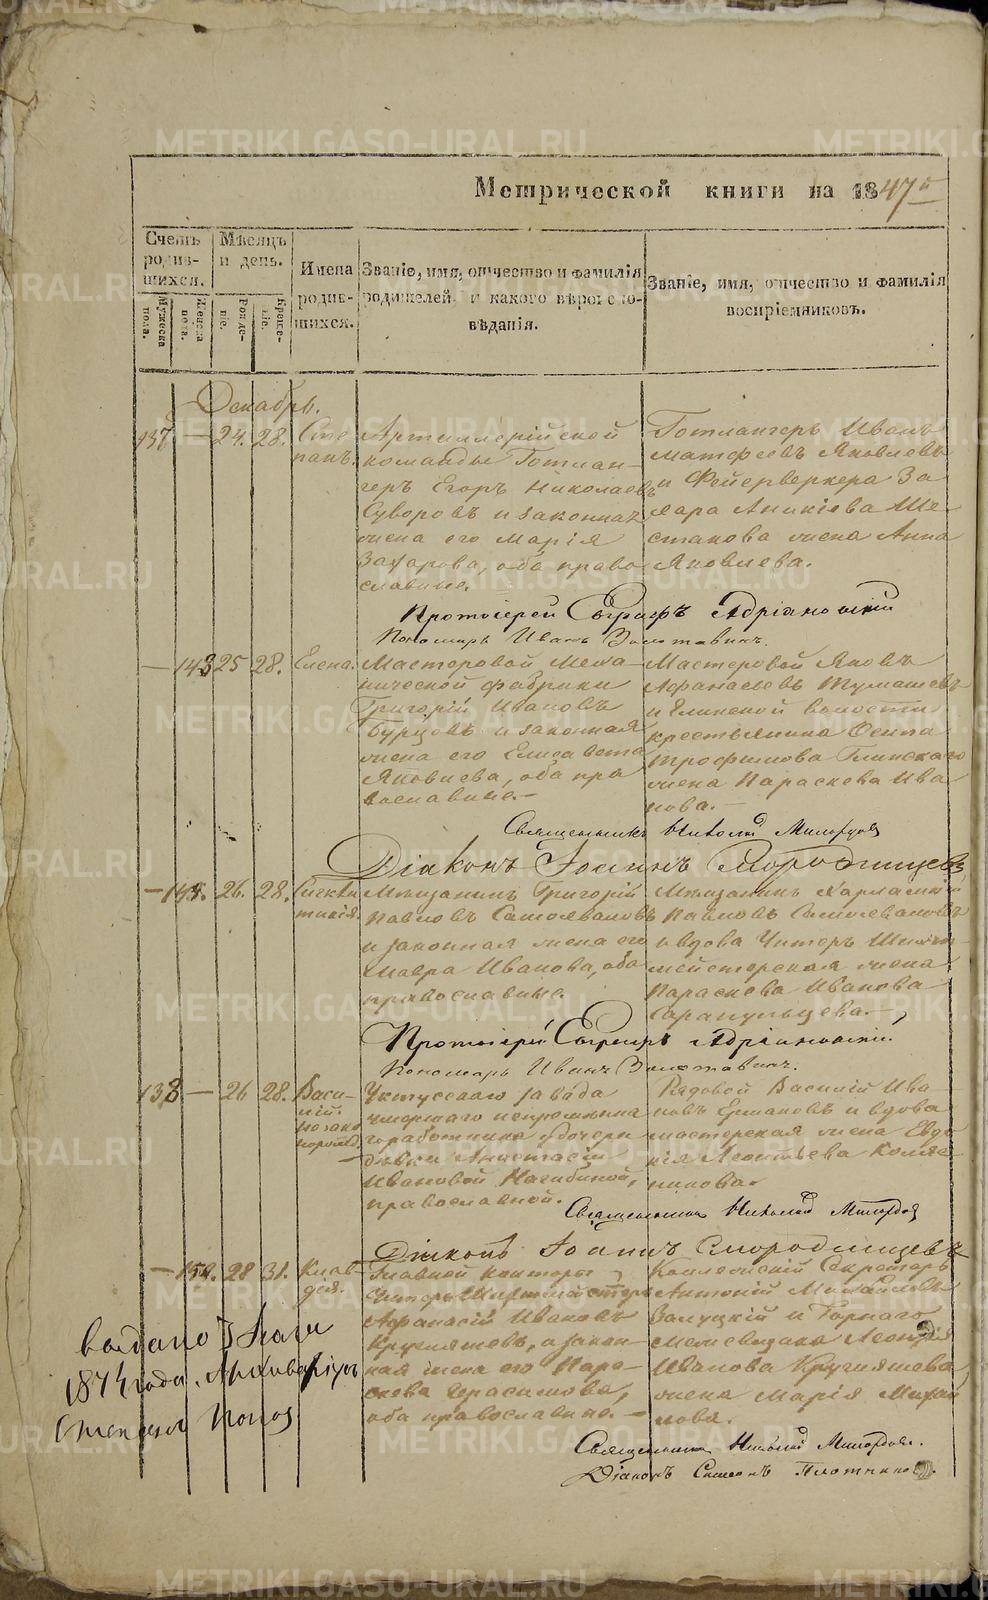 Метрической книги на 1847й
Счетъ родив-шихся.
Мѣсяцъ и день.
Имена родив-шихся.
Званіе, имя, отчество и фамилія родителей, и какого вѣроисповѣданія.
Званіе, имя, отчество и фамилія воспріемниковъ.
Мужеска пола.
Женска пола.
Рожденіе.
Крещеніе.
Декабрь.
137 — 24. 28. Сте-
панъ.
Артиллерійской
команды Готлан-
геръ Егоръ Николаевъ
Суворовъ и законная
жена его Марія
Захарова, оба право
славные.
Готлангеръ Иванъ
Матфеевъ Яковлевъ
и Фейерверкера За
хара Аникіева Ше-
стакова жена Анна
Яковлева.
Протоіерей Евграфъ Адріановскій
Пономарь Иванъ Золотавинъ.
— 143 25 28. Елена.
Мастеровой Меха-
нической фабрики
Григорій Ивановъ
Бурцовъ и законная
жена его Елисавета
Яковлева, оба пра
вославные. —
Мастеровой Яковъ
Афанасьевъ Тумашевъ
и Глинской волости
крестьянина Осипа
Трофимова Глинскаго
жена Параскева Ива
нова. —
Священникъ Николай
Діаконъ Іоаннъ Смородинцевъ
26. 28.
Мѣщанинъ Григорій
Павловъ Самоеваловъ
и законная жена его
Мавра Иванова, оба
православные.
Мѣщанинъ Харлампій
Павловъ
и вдова Унтеръ Шихт-
мейстерская жена
Параскева Иванова
Сарапульцева. —
Протоіерей Евграфъ Адріановскій.
Пономарь Иванъ Золотавинъ.
138 — 26 28. Васи-
лій.
незако
норожд.
Уктусскаго завода
умершаго непремѣнна
го работника дочери
дѣвки Анастасіи
Ивановой Нагибиной,
православной.
Рядовой Василій Ива
новъ Ермаковъ и вдова
мастерская жена Евдо
кія Леонтьева
Священникъ Николай
Діаконъ Іоаннъ Смородинцевъ
28 31. Клав-
дія.
Главной конторы
Унтеръ Шихтмейстеръ
Афанасій Ивановъ
Кругляшевъ, и закон-
ная жена его Пара-
скева Герасимова,
оба православные. —
Коллежскій Секретарь
Антоній Михайловъ
Залуцкій и Горнаго
Межевщика Леонтія
Иванова Кругляшева
жена Марія Михай
лова.
Священникъ Николай
Діаконъ Симеонъ Плотниковъ.
выдано 7 Мая
1874 года. Архиваріусъ
Степанъ Попов
METRIKI.GASO-URAL.RU